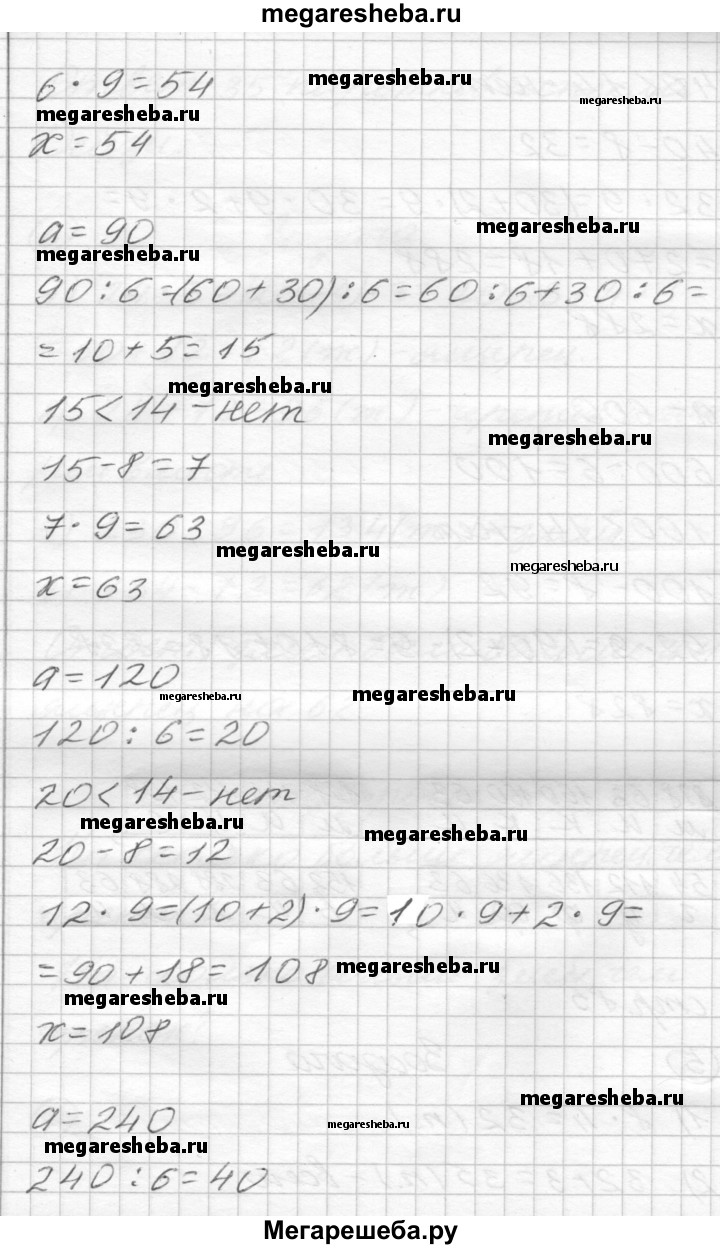 megaresheba.ru
6 · 9 = 54
megaresheba.ru
megaresheba.ru
megaresheba.ru
x = 54
a = 90
megaresheba.ru
megaresheba.ru
90 : 6 = (60 + 30) : 6 = 60 : 6 + 30 : 6 =
= 10 + 5 = 15
megaresheba.ru
15 < 14 - нет
megaresheba.ru
15 - 8 = 7
7 · 9 = 63
megaresheba.ru
megaresheba.ru
x = 63
a = 120
megaresheba.ru
megaresheba.ru
120 : 6 = 20
20 < 14 - нет
megaresheba.ru
megaresheba.ru
20 - 8 = 12
12 · 9 = (10 + 2) · 9 = 10 · 9 + 2 · 9 =
= 90 + 18 = 108
megaresheba.ru
megaresheba.ru
x = 108
megaresheba.ru
a = 240
megaresheba.ru
megaresheba.ru
240 : 6 = 40
Мегарешеба.ру